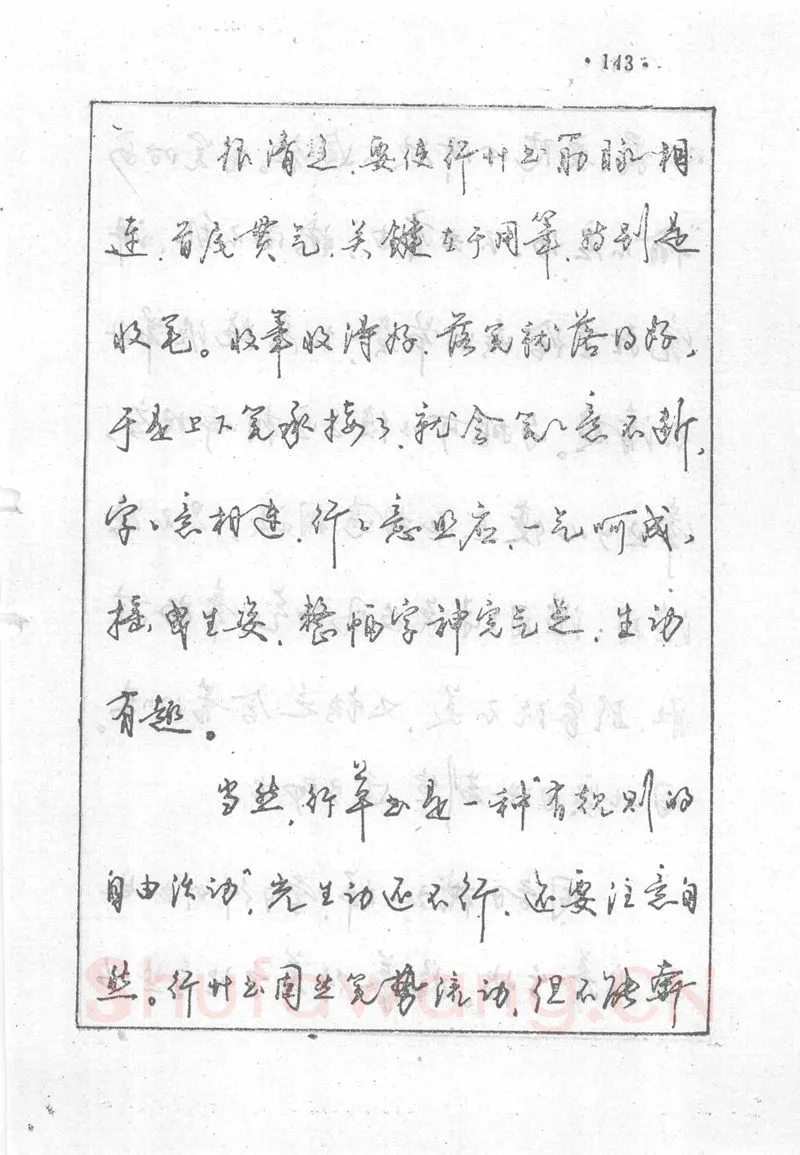 ·143·
很清楚,要使行草书筋脉相
连,首尾贯气,关键在于用笔,特别是
收笔。收笔收得好,落笔就落得好,
于是上下笔承接了,就会笔笔意不断,
字字意相连,行行意照应,一气呵成,
摇曳生姿,整幅字神完气足,生动
有趣。
当然,行草书是一种“有规则的
自由活动”,光生动还不行,还要注意自
然。行草书固然笔势流动,但不能
Shufawang.CN